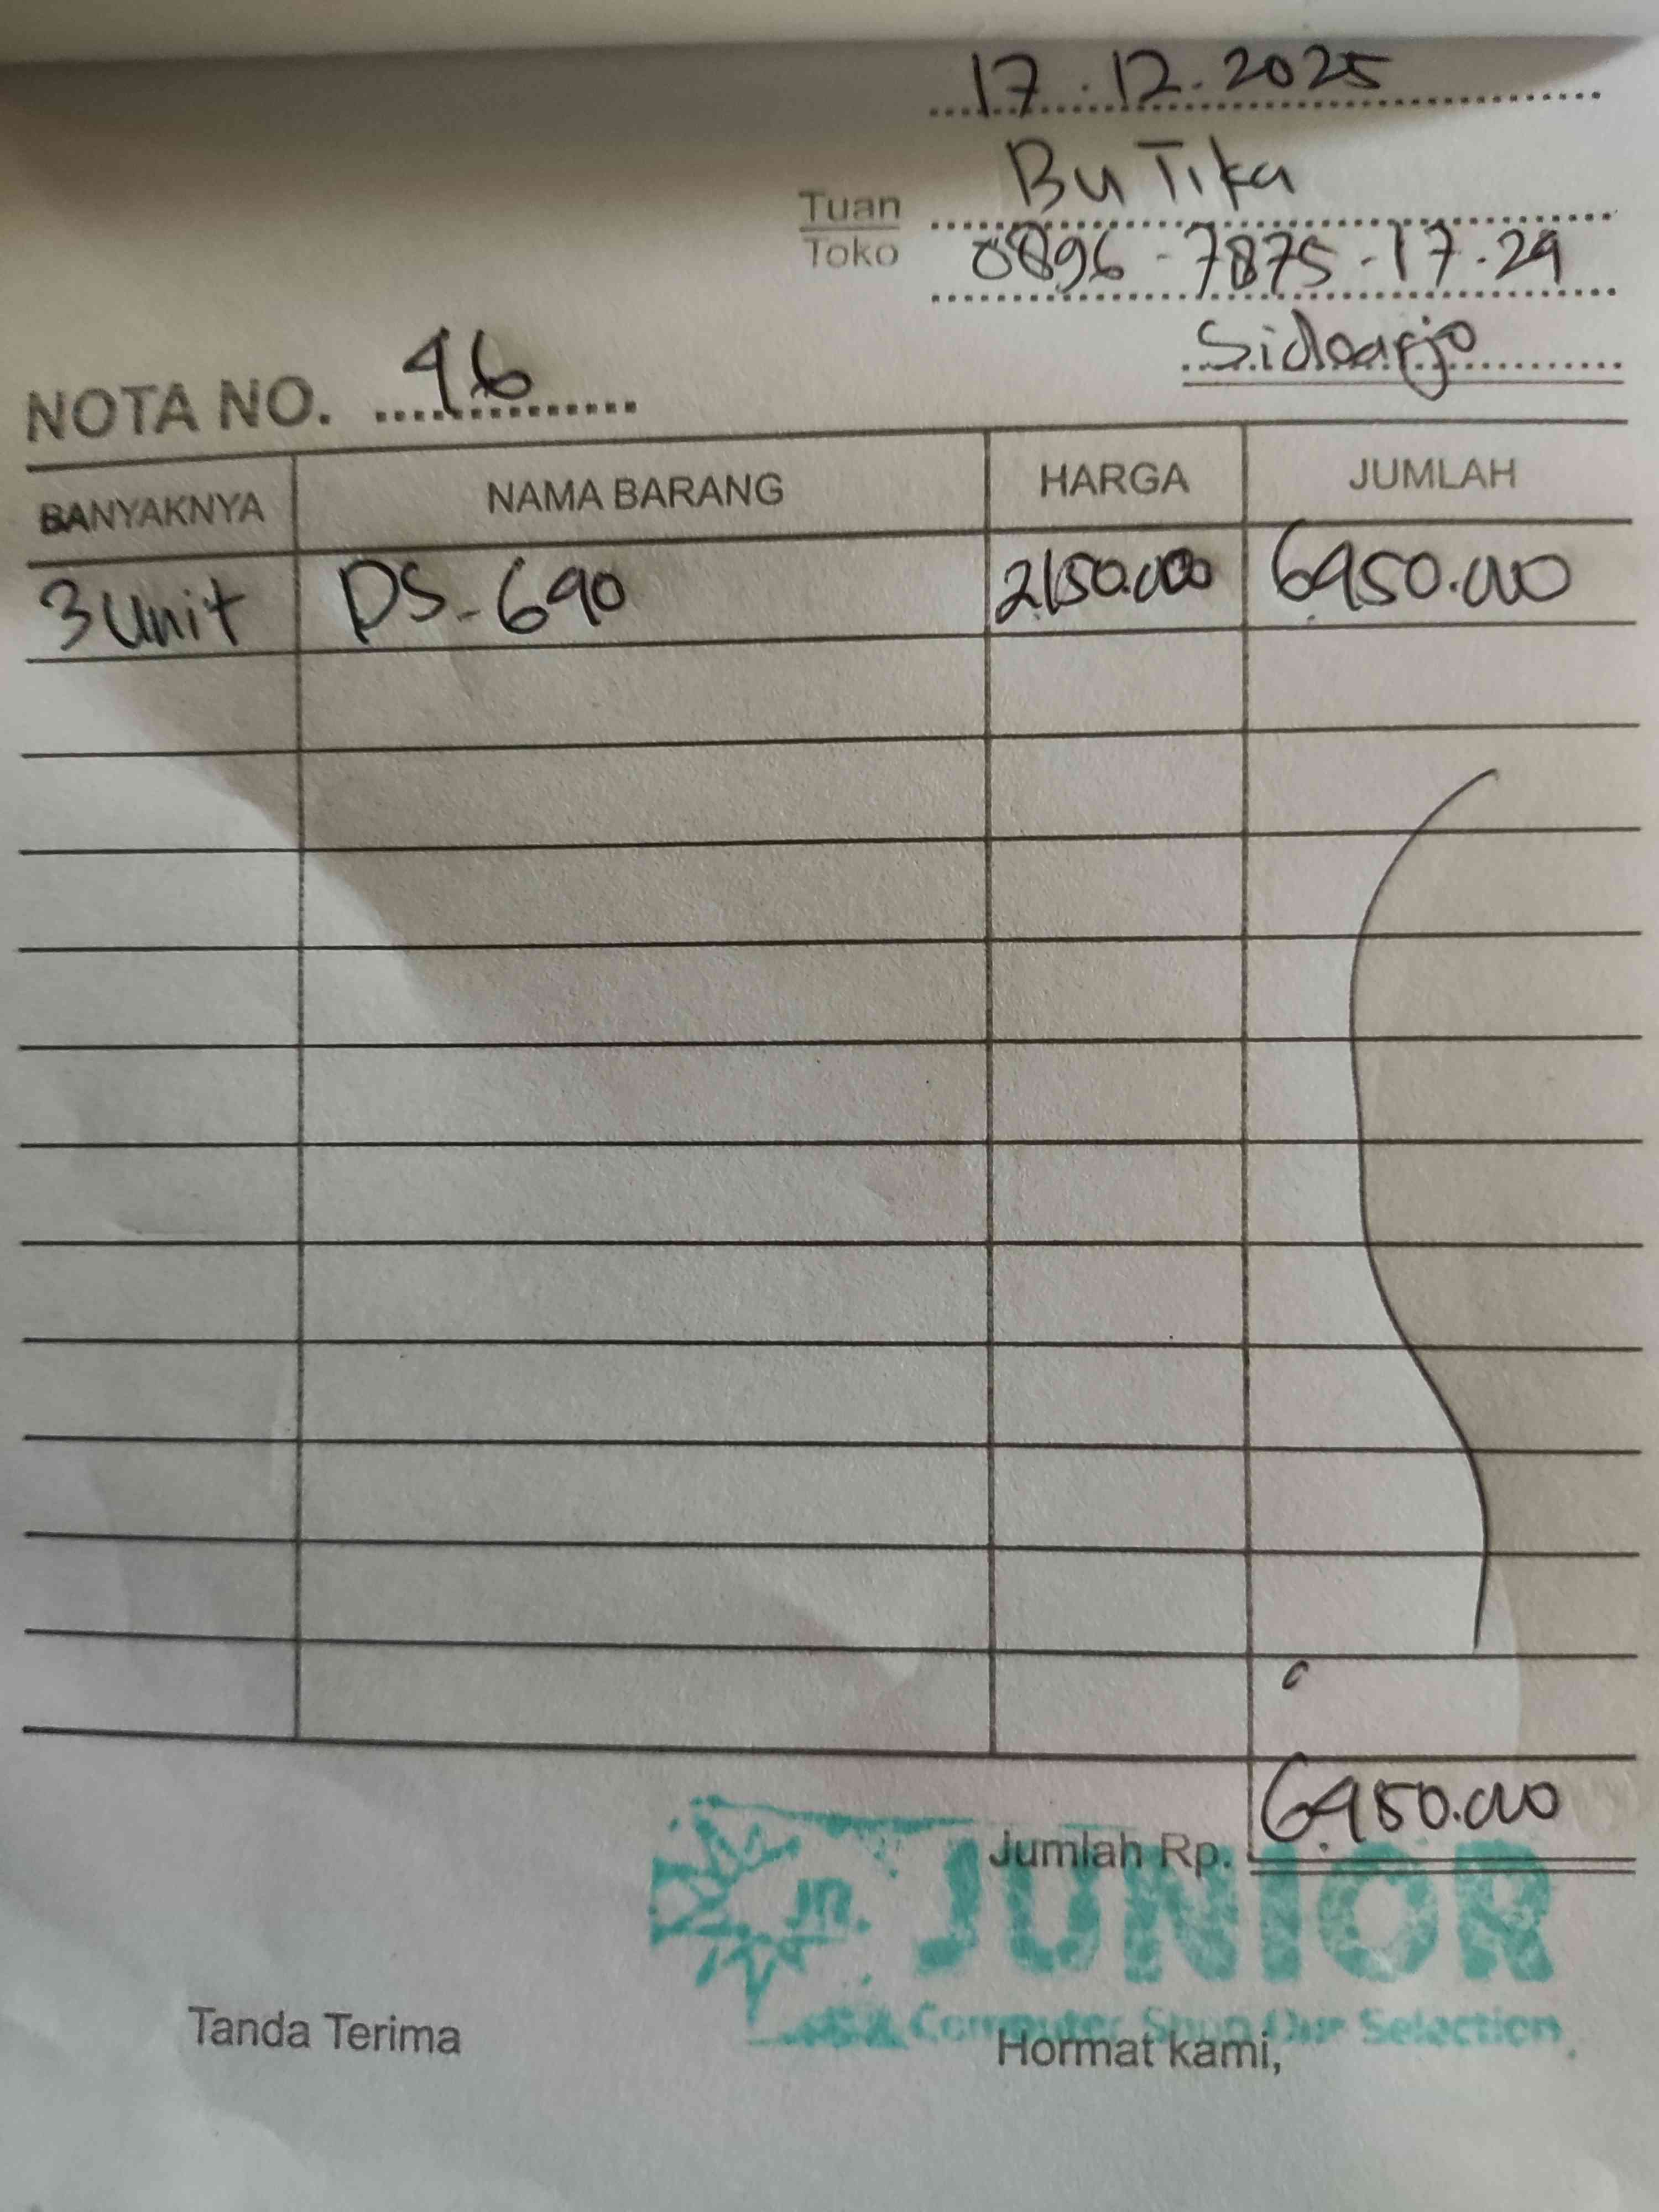 17.12.2025
Bu Tika
Tuan
Toko
0896-7875-17.29
Sidoarjo
NOTA NO. 46
BANYAKNYA NAMA BARANG HARGA JUMLAH
3 Unit DS-690 2.150.000 6.450.000
Jumlah Rp. 6.450.000
JR JUNIOR
Computer Shop Our Selection
Tanda Terima Hormat kami,